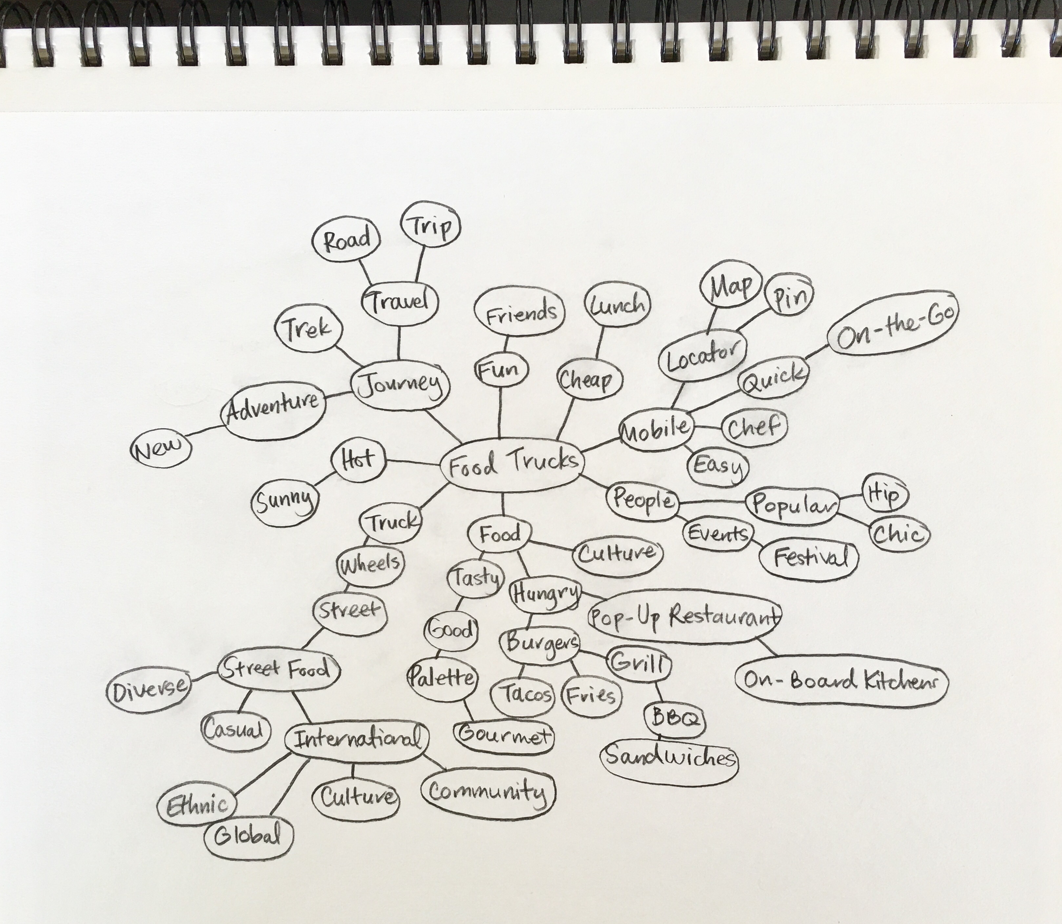 Trip
Road
Travel
Trek
Friends
Lunch
Map
Pin
On-the-Go
Locator
Quick
Journey
Fun
Cheap
Adventure
New
Mobile
Chef
Easy
Hot
Food Trucks
Sunny
People
Popular
Hip
Chic
Truck
Food
Events
Culture
Festival
Wheels
Tasty
Hungry
Street
Good
Pop-Up Restaurant
Burgers
Grill
Street Food
Diverse
Palette
Tacos
Fries
On-Board Kitchens
Casual
International
Gourmet
BBQ
Sandwiches
Ethnic
Culture
Community
Global